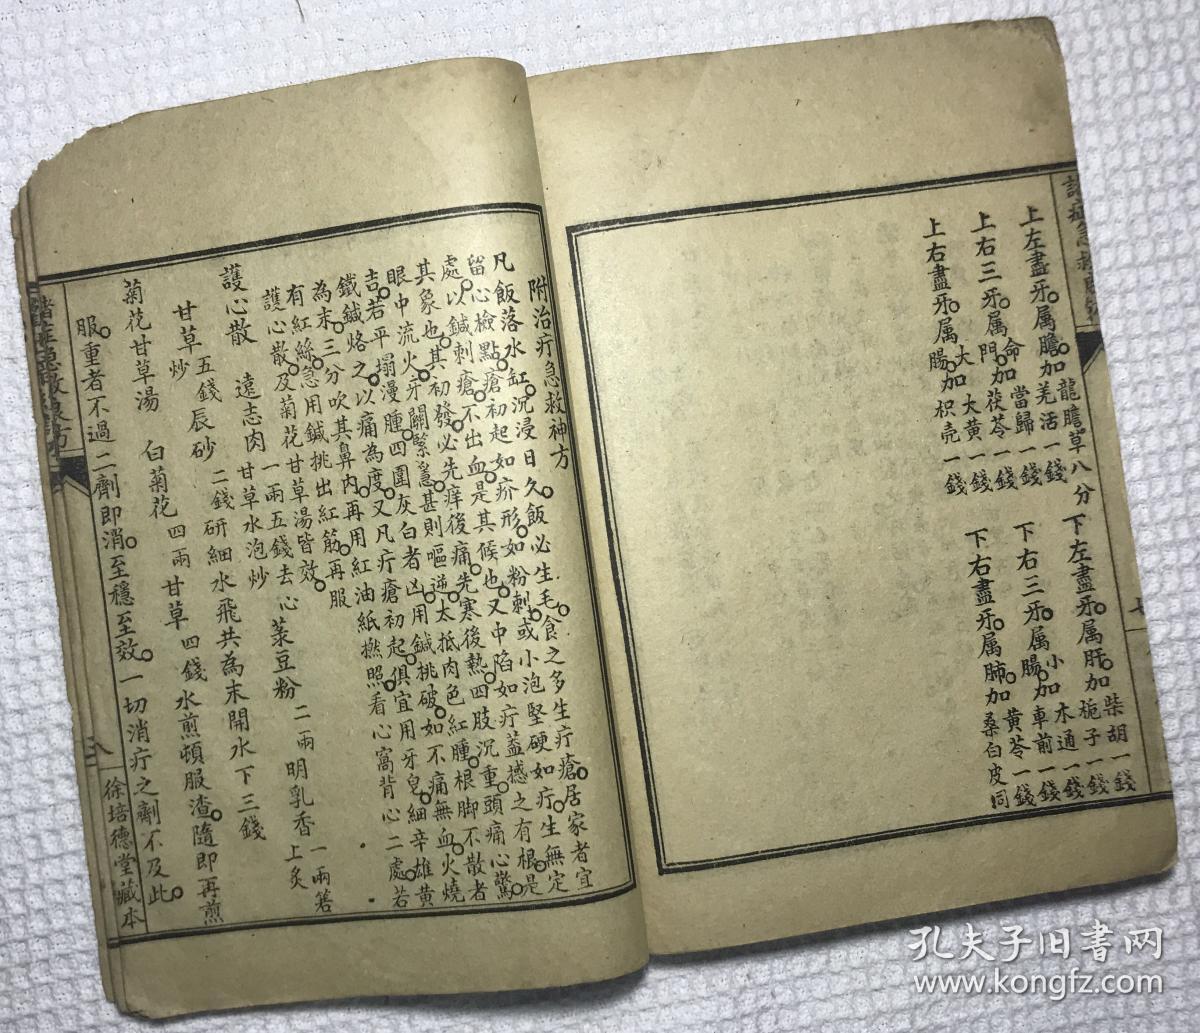 上左盡牙。属膽。加羌活一錢 龍膽草八分 下左盡牙。属肝。加柴胡一錢 梔子一錢
上右三牙。属命門。加當歸一錢 茯苓一錢 大黄一錢 下右三牙。属小腸。加木通一錢 車前一錢 黄苓一錢
上右盡牙。属大腸。加枳壳一錢 下右盡牙。属肺。加桑白皮同
附治疔急救神方
凡飯落水缸。沉浸日久。飯必生毛。食之多生疔瘡。居家者宜
留心檢點。瘡初起如疥形。如粉刺。或小泡堅硬如疔。生無定
處。以鍼刺瘡。不出血。是其候也。又中陷如疔蓋撼之有根。是
其象也。其初發必先痒後痛。先寒後熱。四肢沉重。頭痛心驚。
眼中流火。牙關緊。甚則嘔逆。太抵肉色紅腫。根脚不散者
吉。若平塌漫腫。四圍灰白者凶。用鍼挑破。如不痛無血。火燒
鐵鍼烙之。以痛為度。又凡疔瘡初起。俱宜用牙皂。細辛。雄黄
為末。三分吹其鼻内。再用紅油紙撚照。看心窩背心二處。若
有紅絲。急用鍼挑出紅筋。再服
護心散。及菊花甘草湯皆效。
護心散 遠志肉一兩五錢去心 甘草水泡炒 菉豆粉二兩 明乳香一兩箬上炙
甘草炒五錢 辰砂二錢 研細水飛共為末開水下三錢
菊花甘草湯 白菊花四兩 甘草四錢 水煎頓服渣。隨即再煎
服。重者不過二劑即消。至穩至效。一切消疔之劑不及此。
八
徐培德堂藏本
孔夫子旧書网
www.kongfz.com